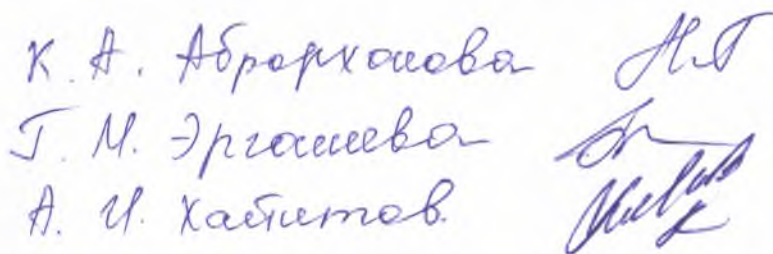 К. А. Аброрхонова
Г. М. Эргашева
А. И. Хатитов